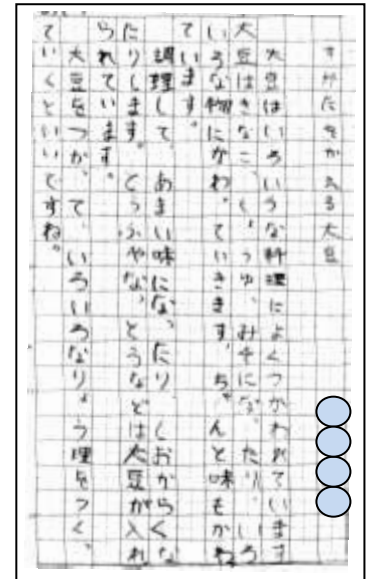 すがたをかえる大豆
大豆はいろいろな料理によくつかわれています
大豆はきなこ、しょうゆ、みそになったり、いろ
いろな物にかわっていきます。ちゃんと味もかわっ
ています。
調理して、あまい味になったり、しおからくな
たりします。とうふやなっとうなどは大豆が入れ
られています。
大豆をつかって、いろいろなりょう理をつくっ
ていくといいですね。